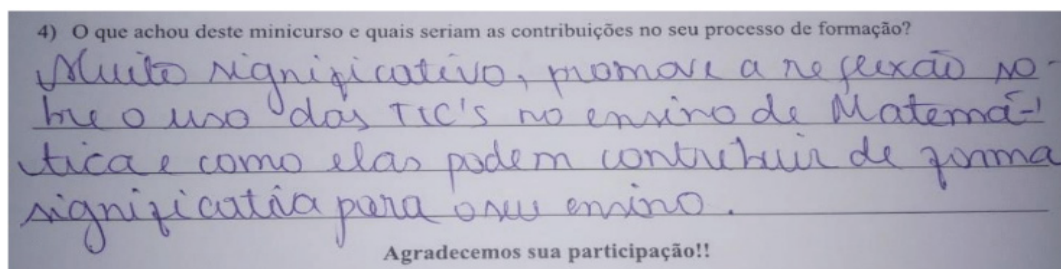 4) O que achou deste minicurso e quais seriam as contribuições no seu processo de formação?
Muito significativo, promove a reflexão so-
bre o uso das TIC's no ensino de Matemá-
tica e como elas podem contribuir de forma
significativa para o seu ensino.
Agradecemos sua participação!!